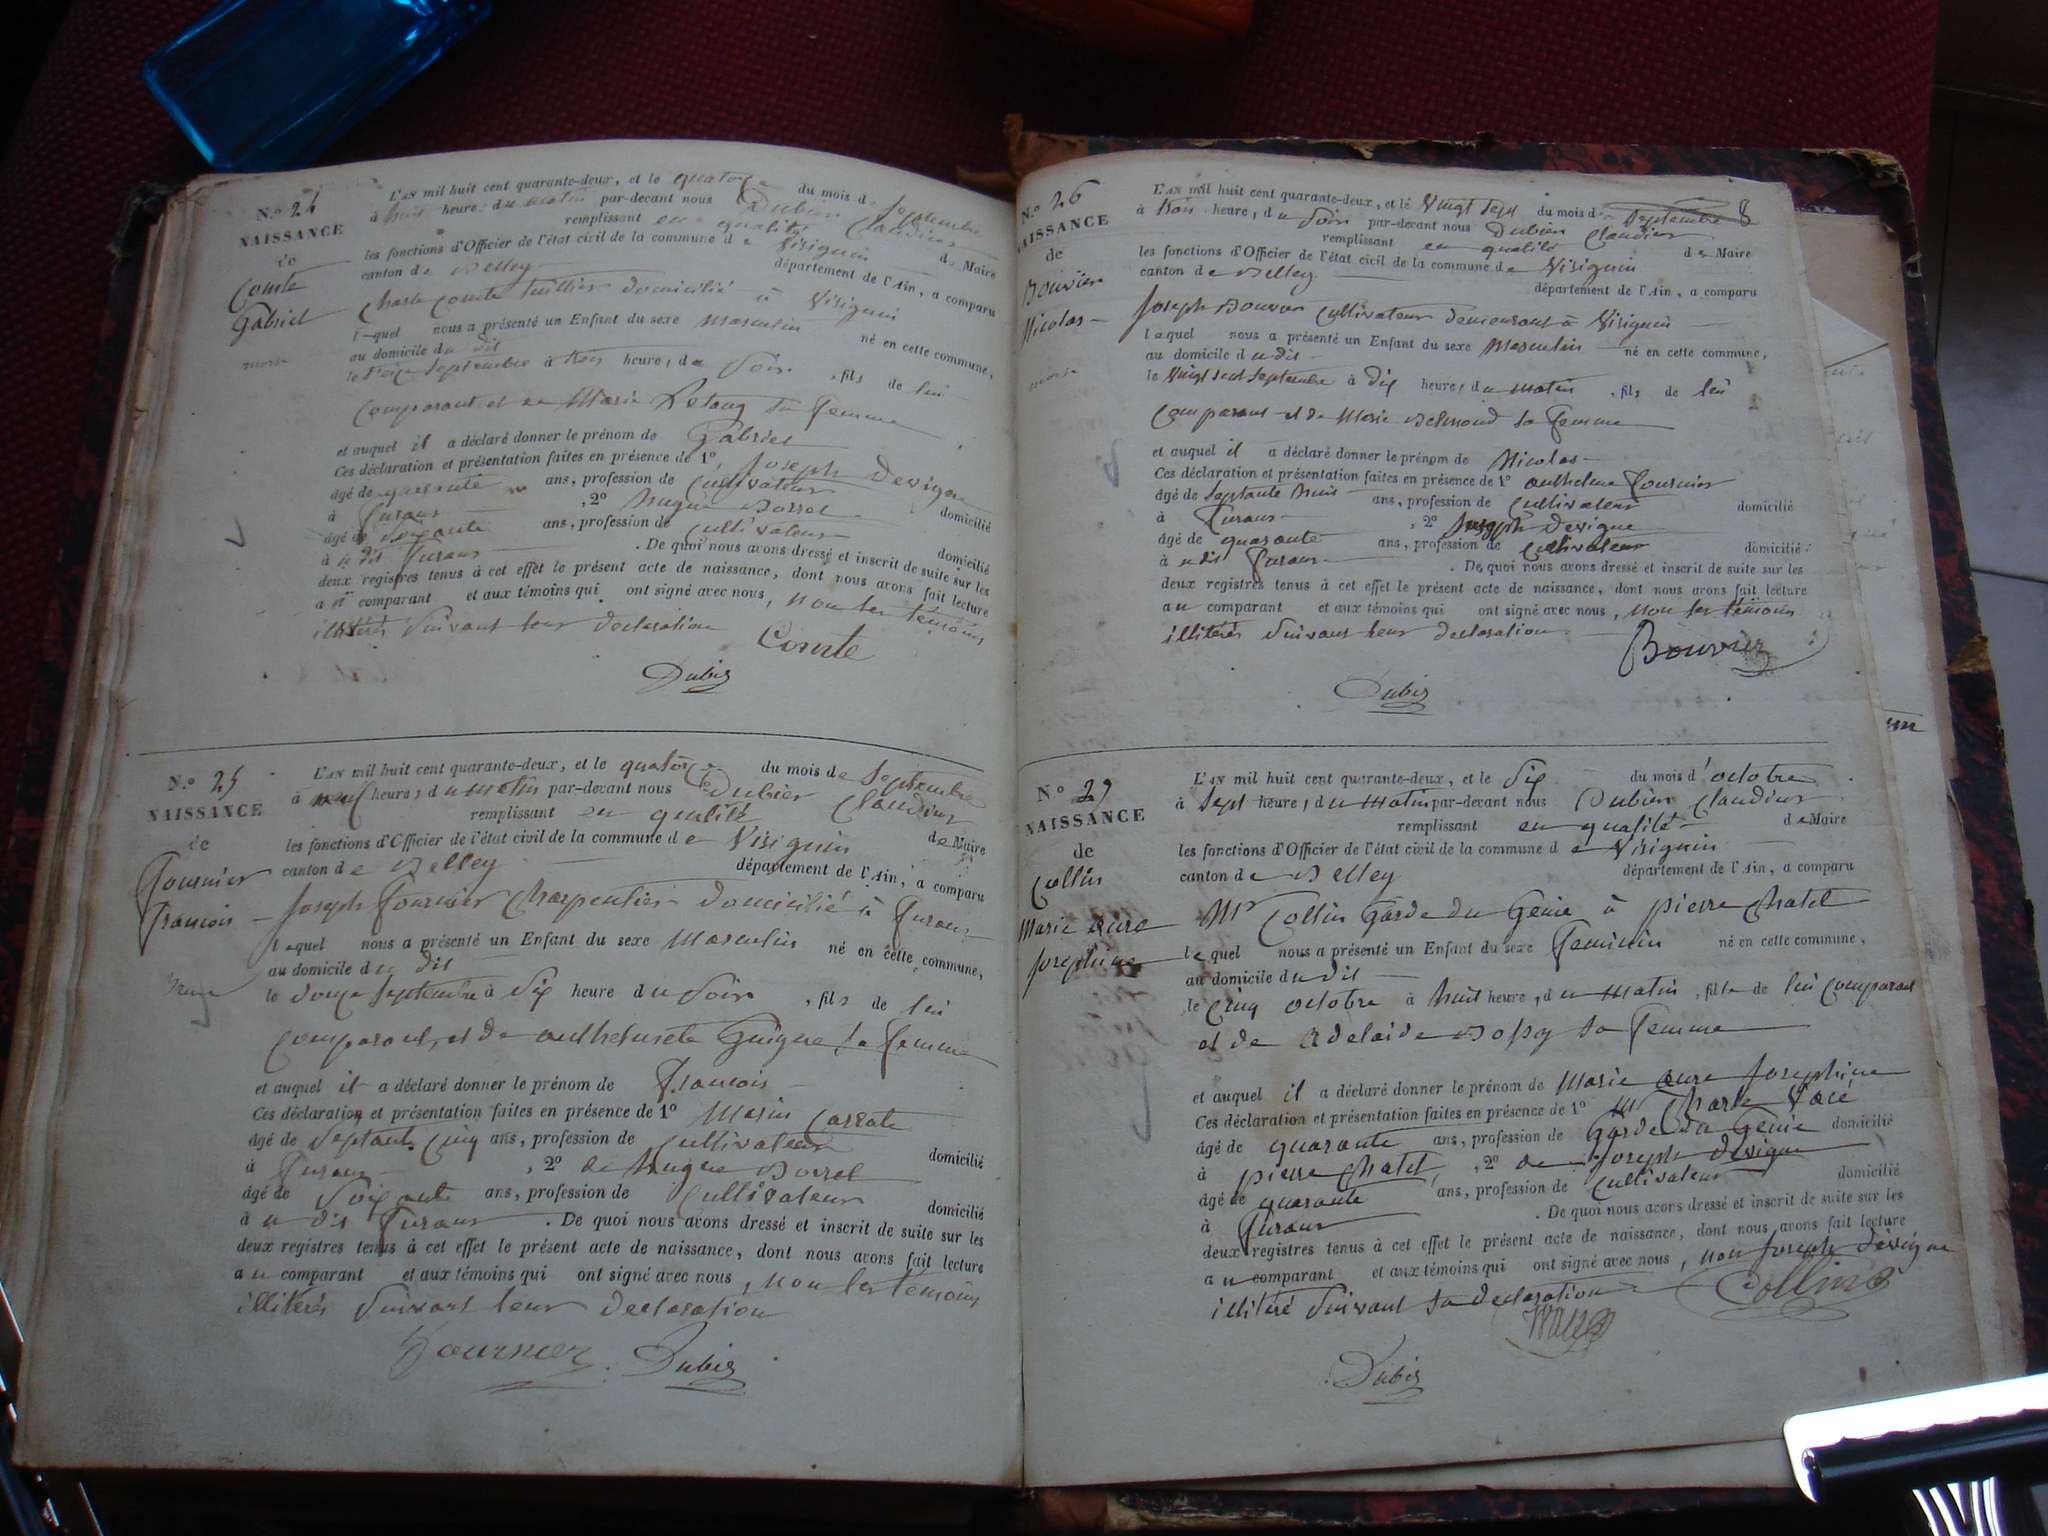 N.o 24
NAISSANCE
de
Comte
Gabriel
L'AN mil huit cent quarante-deux, et le quatorze du mois de septembre
à huit heure, du matin par-devant nous Dubier Claudius
remplissant en qualité de Maire
les fonctions d'Officier de l'état civil de la commune de Virignin
canton de Belley département de l'Ain, a comparu
Charle Comte tuillier domicilié à Virignin
lequel nous a présenté un Enfant du sexe Masculin né en cette commune,
au domicile du dit
le septembre à trois heure, du soir, fils de lui
comparant et de Marie sa femme
et auquel il a déclaré donner le prénom de Gabriel
Ces déclaration et présentation faites en présence de 1o Joseph Devigne
âgé de quarante ans, profession de cultivateur domicilié
à Furans, 2o Hugue Borrel
âgé de soixante ans, profession de cultivateur domicilié
à u dit Furans. De quoi nous avons dressé et inscrit de suite sur les
deux registres tenus à cet effet le présent acte de naissance, dont nous avons fait lecture
au comparant et aux témoins qui ont signé avec nous, non les témoins
illitérés suivant leur declaration
Comte
Dubier
N.o 25
NAISSANCE
de
Fournier
Francois
L'AN mil huit cent quarante-deux, et le quatorze du mois de septembre
à neuf heure, du matin par-devant nous Dubier Claudius
remplissant en qualité de Maire
les fonctions d'Officier de l'état civil de la commune de Virignin
canton de Belley département de l'Ain, a comparu
Joseph Fournier Charpentier domicilié à Furans
lequel nous a présenté un Enfant du sexe Masculin né en cette commune,
au domicile du dit
le douze septembre à dix heure du soir, fils de lui
comparant, et de anthelmete Guigue sa femme
et auquel il a déclaré donner le prénom de Francois
Ces déclaration et présentation faites en présence de 1o Marin
âgé de septante cinq ans, profession de cultivateur domicilié
à Furans, 2o de Hugue Borrel
âgé de soixante ans, profession de cultivateur domicilié
à u dit Furans. De quoi nous avons dressé et inscrit de suite sur les
deux registres tenus à cet effet le présent acte de naissance, dont nous avons fait lecture
au comparant et aux témoins qui ont signé avec nous, non les témoins
illitérés suivant leur declaration
Fournier Dubier
8
N.o 26
NAISSANCE
de
Bouvier
Nicolas
L'AN mil huit cent quarante-deux, et le vingt sept du mois de septembre
à trois heure, du soir par-devant nous Dubier Claudius
remplissant en qualité de Maire
les fonctions d'Officier de l'état civil de la commune de Virignin
canton de Belley département de l'Ain, a comparu
Joseph Bouvier cultivateur demeurant à Virignin
lequel nous a présenté un Enfant du sexe Masculin né en cette commune,
au domicile du dit
le vingt sept septembre à dix heure, du matin, fils de lui
comparant et de Marie sa femme
et auquel il a déclaré donner le prénom de Nicolas
Ces déclaration et présentation faites en présence de 1o anthelme Fournier
âgé de septante huit ans, profession de cultivateur domicilié
à Furans, 2o Joseph Devigne
âgé de quarante ans, profession de cultivateur domicilié
à u dit Furans. De quoi nous avons dressé et inscrit de suite sur les
deux registres tenus à cet effet le présent acte de naissance, dont nous avons fait lecture
au comparant et aux témoins qui ont signé avec nous, non les témoins
illitérés suivant leur declaration
Bouvier
Dubier
N.o 29
NAISSANCE
de
Collin
Marie aure
Josephine
L'AN mil huit cent quarante-deux, et le dix du mois d'octobre
à sept heure, du matin par-devant nous Dubier Claudius
remplissant en qualité de Maire
les fonctions d'Officier de l'état civil de la commune de Virignin
canton de Belley département de l'Ain, a comparu
Mr Collin Garde du Génie à pierre Chatel
lequel nous a présenté un Enfant du sexe Feminin né en cette commune,
au domicile du dit
le cinq octobre à huit heure, du matin, fille de lui comparant
et de Adelaide sa femme
et auquel il a déclaré donner le prénom de Marie aure Josephine
Ces déclaration et présentation faites en présence de 1o Mr Charle
âgé de quarante ans, profession de Garde du Génie domicilié
à pierre Chatel, 2o de Joseph Devigne
âgé de quarante ans, profession de cultivateur domicilié
à Furans. De quoi nous avons dressé et inscrit de suite sur les
deux registres tenus à cet effet le présent acte de naissance, dont nous avons fait lecture
au comparant et aux témoins qui ont signé avec nous, non Joseph Devigne
illitéré suivant sa declaration
Collin
Dubier